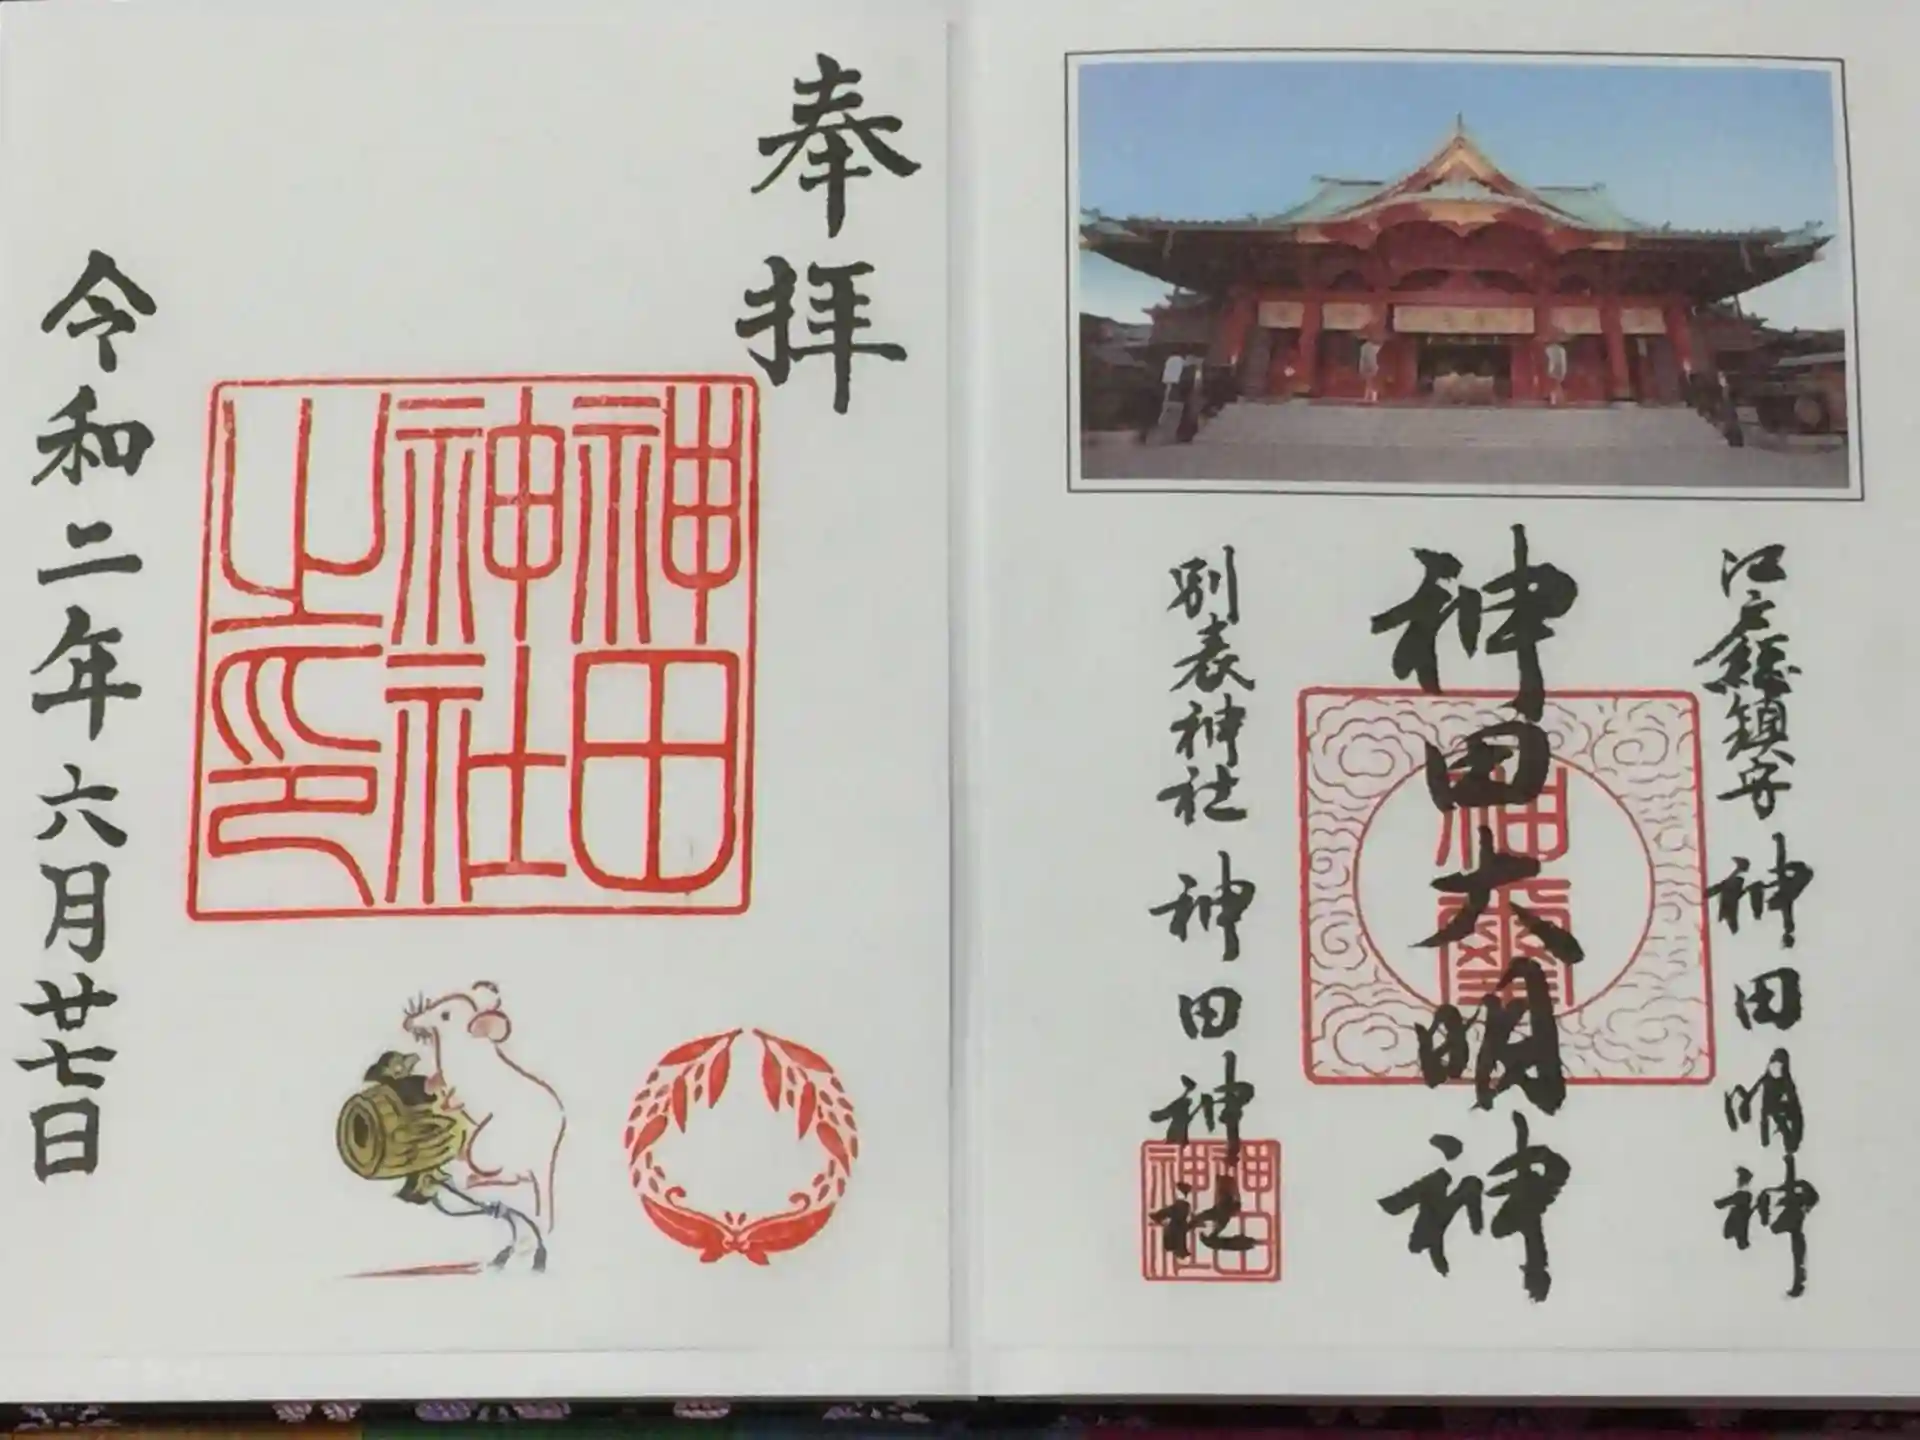 江戸総鎮守 神田明神
神田大明神
神璽
別表神社 神田神社
神田
神社
奉拝
神田
神社
之印
令和二年六月廿七日